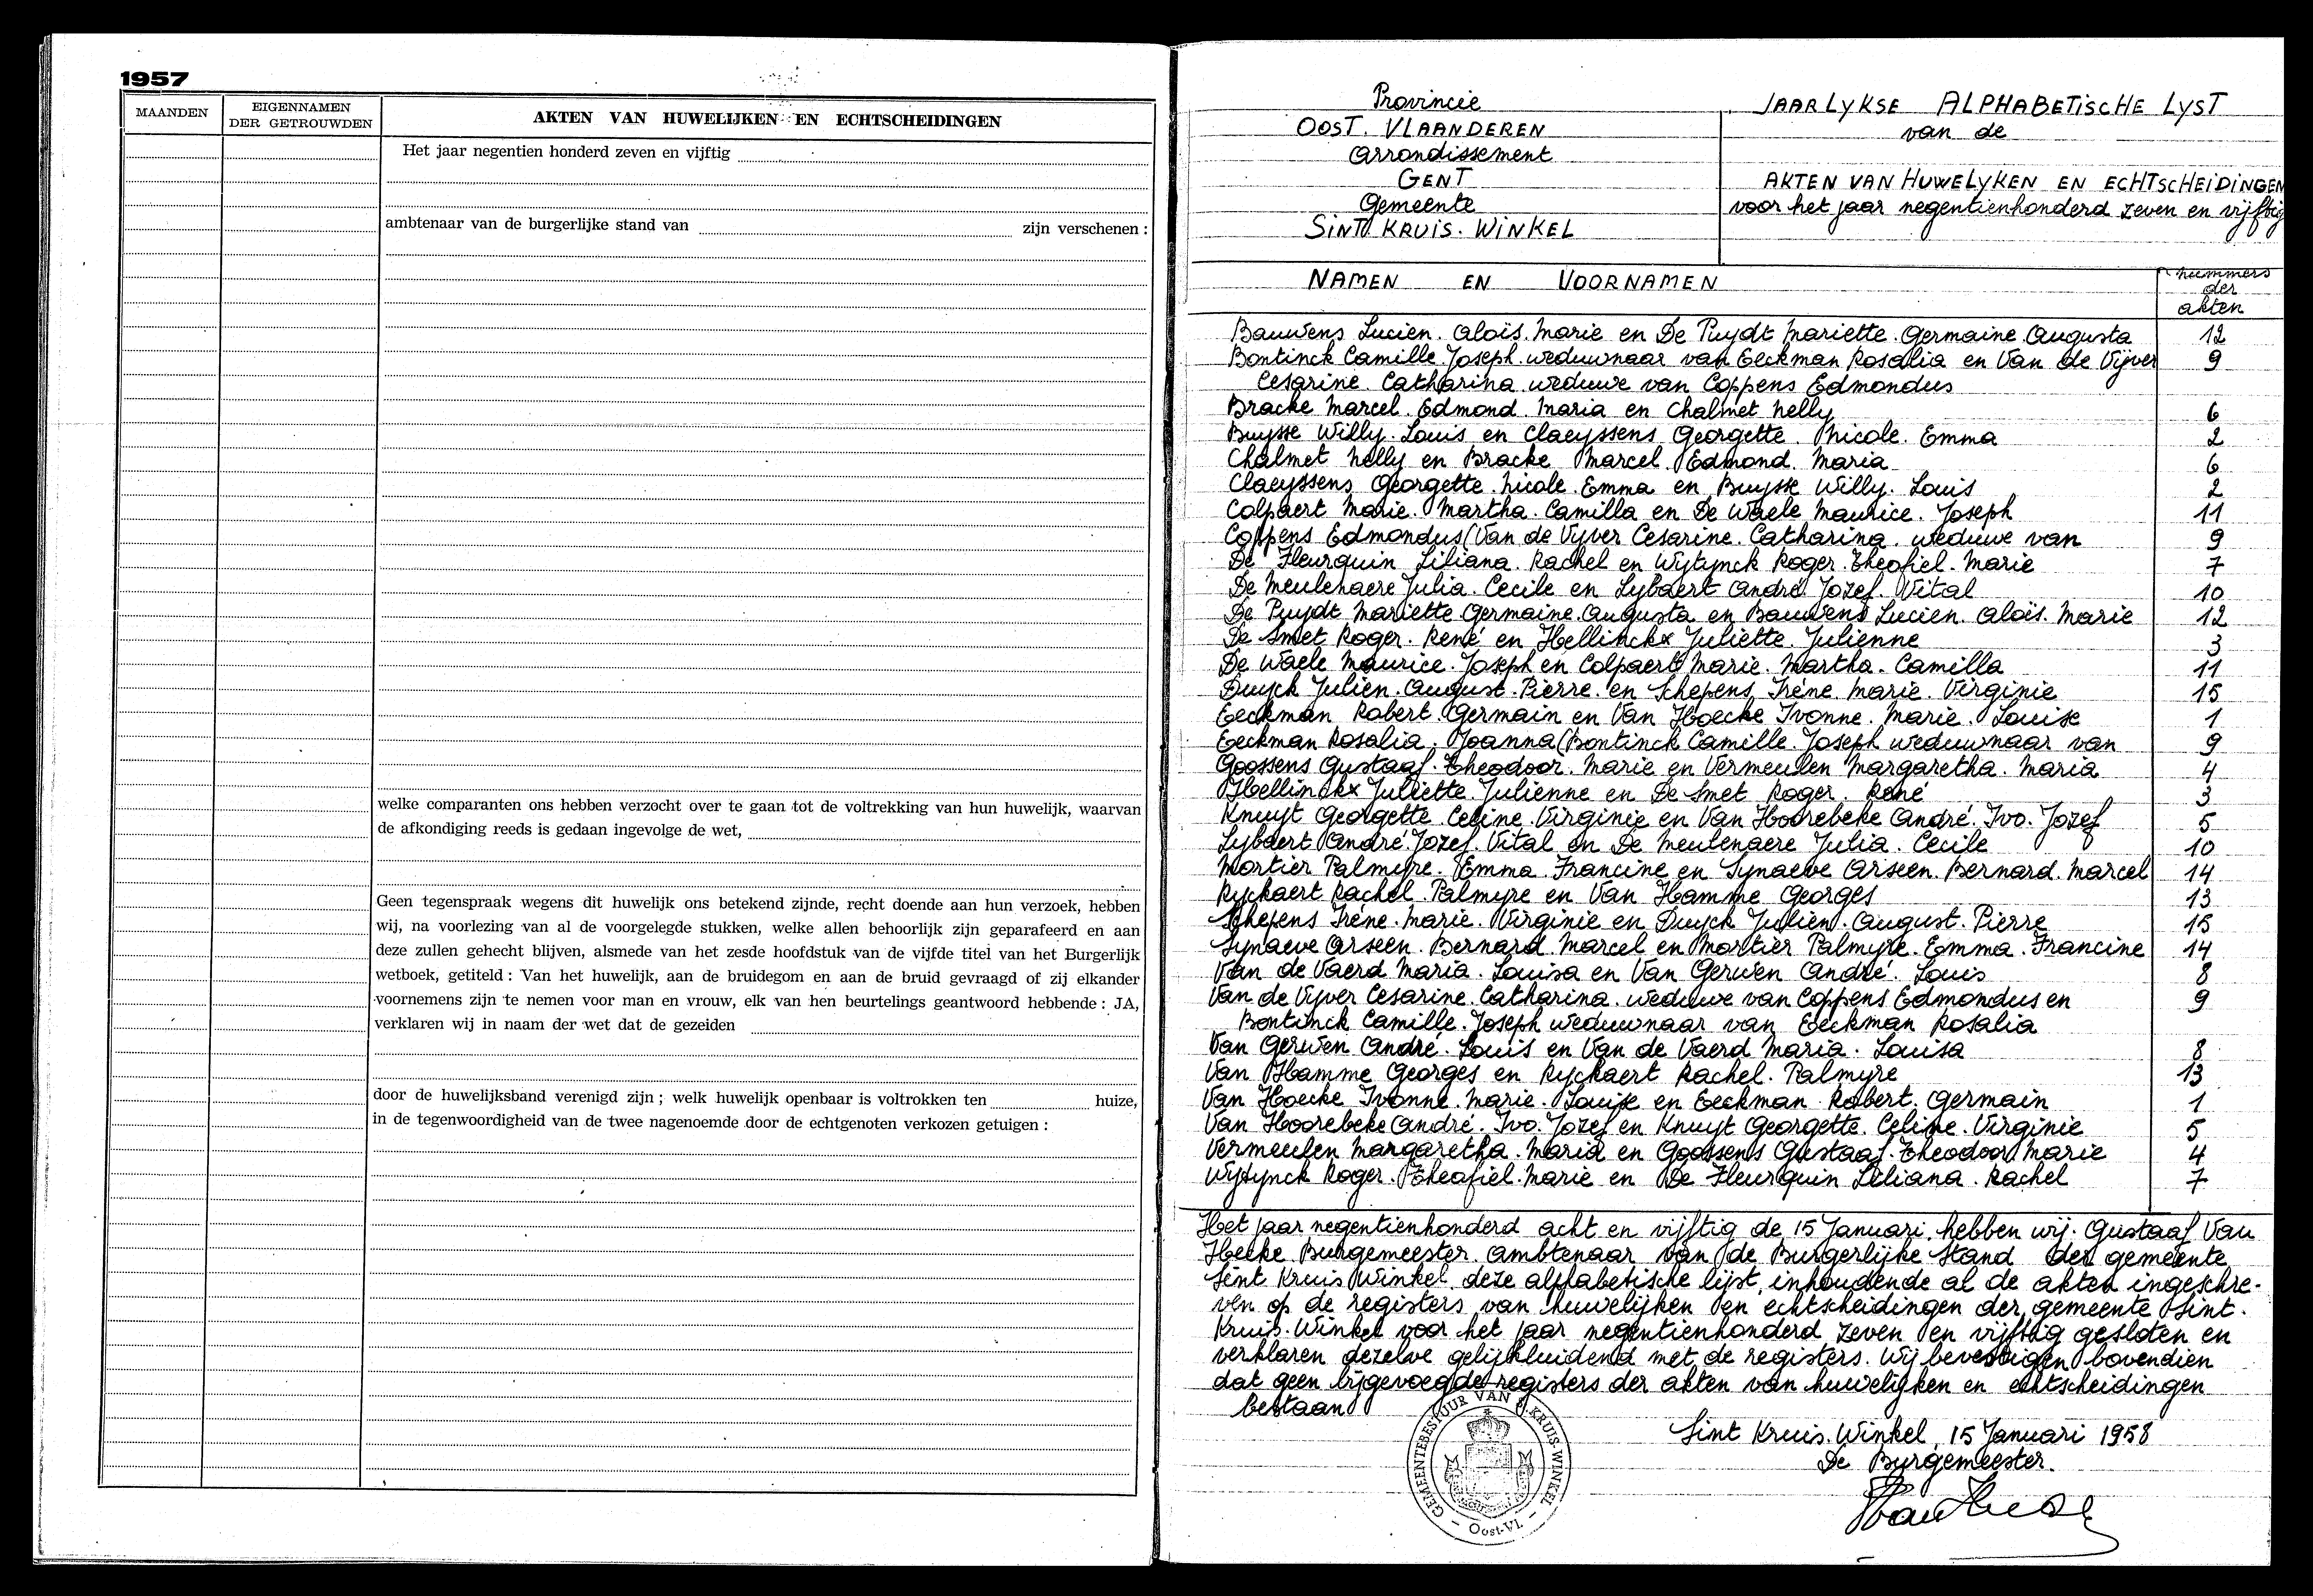 1957
MAANDEN
EIGENNAMEN
DER GETROUWDEN
AKTEN VAN HUWELIJKEN EN ECHTSCHEIDINGEN
Het jaar negentien honderd zeven en vijftig
ambtenaar van de burgerlijke stand van zijn verschenen :
welke comparanten ons hebben verzocht over te gaan tot de voltrekking van hun huwelijk, waarvan
de afkondiging reeds is gedaan ingevolge de wet,
Geen tegenspraak wegens dit huwelijk ons betekend zijnde, recht doende aan hun verzoek, hebben
wij, na voorlezing van al de voorgelegde stukken, welke allen behoorlijk zijn geparafeerd en aan
deze zullen gehecht blijven, alsmede van het zesde hoofdstuk van de vijfde titel van het Burgerlijk
wetboek, getiteld : Van het huwelijk, aan de bruidegom en aan de bruid gevraagd of zij elkander
voornemens zijn te nemen voor man en vrouw, elk van hen beurtelings geantwoord hebbende : JA,
verklaren wij in naam der wet dat de gezeiden
door de huwelijksband verenigd zijn ; welk huwelijk openbaar is voltrokken ten huize,
in de tegenwoordigheid van de twee nagenoemde door de echtgenoten verkozen getuigen :
Provincie
OOST. VLAANDEREN
Arrondissement
GENT
Gemeente
SINT KRUIS. WINKEL
JAARLYKSE ALPHABETISCHE LYST
van de
AKTEN VAN HUWELYKEN EN ECHTSCHEIDINGEN
voor het jaar negentienhonderd zeven en vijftig
NAMEN EN VOORNAMEN
nummers
der
akten
Bauwens Lucien. Alois. Marie en De Puydt Mariette. Germaine. Augusta 12
Bontinck Camille. Joseph. weduwnaar van Eeckman Rosalia en Van de Vijver 9
Cesarine. Catharina weduwe van Coppens Edmondus
Bracke Marcel. Edmond. Maria en Chalmet Nelly 6
Buysse Willy. Louis en Claeyssens Georgette. Nicole. Emma 2
Chalmet Nelly en Bracke Marcel. Edmond. Maria 6
Claeyssens Georgette. Nicole. Emma en Buysse Willy. Louis 2
Colpaert Marie. Martha. Camilla en De Waele Maurice. Joseph 11
Coppens Edmondus (Van de Vyver Cesarine. Catharina. weduwe van 9
De Fleurquin Liliana. Rachel en Wytynck Roger. Theofiel. Marie 7
De Meulenaere Julia. Cecile en Lybaert André. Jozef. Vital 10
De Puydt Mariette Germaine. Augusta en Bauwens Lucien. Alois. Marie 12
De Smet Roger. René en Hellinckx Juliette. Julienne 3
De Waele Maurice. Joseph en Colpaert Marie. Martha. Camilla 11
Duyck Julien. August. Pierre. en Schepens Irène. Marie. Virginie 15
Eeckman Robert. Germain en Van Hoecke Ivonne. Marie. Louise 1
Eeckman Rosalia. Joanna (Bontinck Camille. Joseph weduwnaar van 9
Goossens Gustaaf. Theodoor. Marie en Vermeulen Margaretha. Maria 4
Hellinckx Juliette. Julienne en De Smet Roger. René 3
Knuyt Georgette. Celine. Virginie en Van Hoorebeke André. Ivo. Jozef 5
Lybaert André. Jozef. Vital en De Meulenaere Julia. Cecile 10
Mortier Palmyre. Emma. Francine en Synaeve Arseen. Bernard. Marcel 14
Ryckaert Rachel. Palmyre en Van Hamme Georges 13
Schepens Irène. Marie. Virginie en Duyck Julien. August. Pierre 15
Synaeve Arseen. Bernard. Marcel en Mortier Palmyre. Emma. Francine 14
Van de Vaerd Maria. Louisa en Van Gerwen André. Louis 8
Van de Vyver Cesarine. Catharina. weduwe van Coppens Edmondus en 9
Bontinck Camille. Joseph weduwnaar van Eeckman Rosalia
Van Gerwen André. Louis en Van de Vaerd Maria. Louisa 8
Van Hamme Georges en Ryckaert Rachel. Palmyre 13
Van Hoecke Ivonne. Marie. Louise en Eeckman Robert. Germain 1
Van Hoorebeke André. Ivo. Jozef en Knuyt Georgette. Celine. Virginie 5
Vermeulen Margaretha. Maria en Goossens Gustaaf. Theodoor Marie 4
Wytynck Roger. Theofiel. Marie en De Fleurquin Liliana. Rachel 7
Het jaar negentienhonderd acht en vijftig de 15 Januari, hebben wij. Gustaaf Van
Hecke Burgemeester. ambtenaar van de Burgerlijke Stand der gemeente
Sint Kruis Winkel deze alphabetische lijst, inhoudende al de akten ingeschre-
ven op de registers van huwelijken en echtscheidingen der gemeente Sint.
Kruis. Winkel voor het jaar negentienhonderd zeven en vijftig gesloten en
verklaren dezelve gelijkluidend met de registers. Wij bevestigen bovendien
dat geen bijgevoegde registers der akten van huwelijken en echtscheidingen
bestaan
GEMEENTEBESTUUR VAN S. KRUIS-WINKEL
Oost-Vl.
Sint Kruis. Winkel, 15 Januari 1958
De Burgemeester.